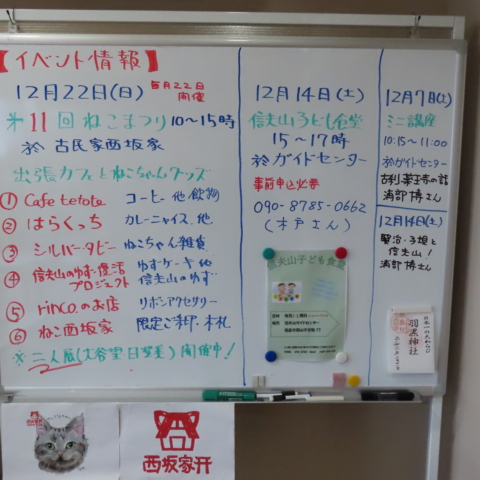 【イベント情報】
12月22日(日) 毎月22日
開催
第11回ねこまつり 10～15時
於 古民家西坂家
出張カフェとねこちゃんグッズ
① Cafe tetote コーヒー 他 飲物
② はらくっち カレーライス、他
③ シルバータビー ねこちゃん雑貨
④ 信夫山のゆず復活
プロジェクト ゆずケーキ 他
信夫山のゆず
⑤ rinco.のお店 リボンアクセサリー
⑥ ねこ西坂家 限定ご朱印・木札
※二人展(大谷堂 日望美)開催中!
12月14日(土)
信夫山子ども食堂
15～17時
於ガイドセンター
事前申込必要
090-8785-0662
(木戸さん)
信夫山子ども食堂
12月7日(土)
ミニ講座
10:15～11:00
於ガイドセンター
古刹薬王寺の話
浦部博さん
12月14日(土)
賢治・3娘と
信夫山!
浦部博さん
日本一の大わらじ
羽黒神社
西坂家